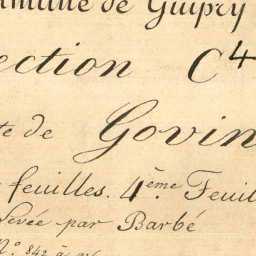 mmune de Guipry
ection C4
te de Govin
feuilles. 4ème Feuil
Levée par Barbé
N° 842 à